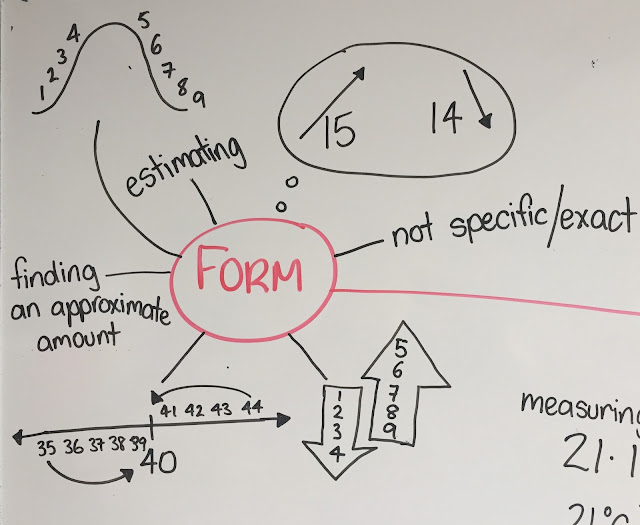 1 2 3 4 5 6 7 8 9
estimating
15 14
FORM
not specific/exact
finding
an approximate
amount
41 42 43 44
35 36 37 38 39
40
1
2
3
4
5
6
7
8
9
measuring
21.1
21°